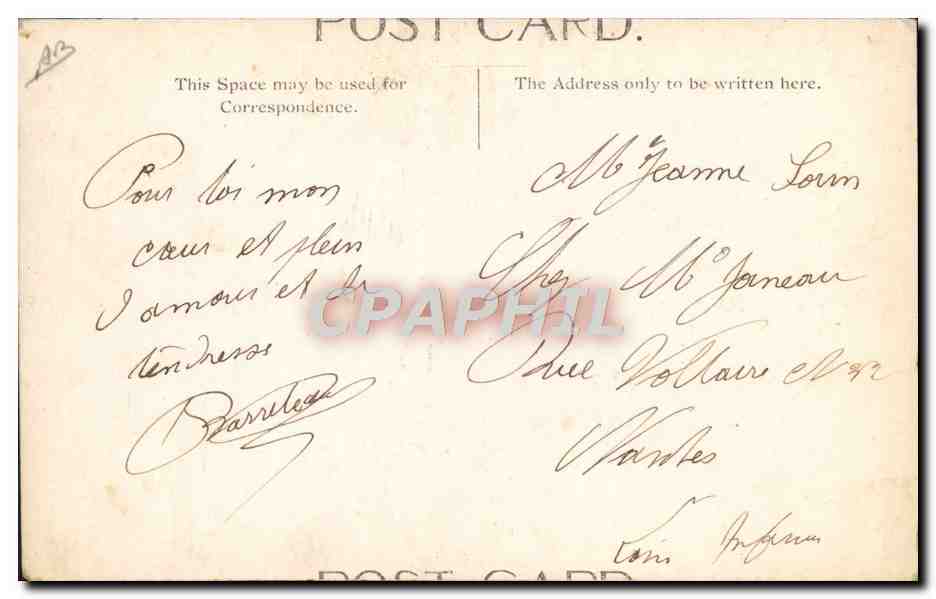 POST CARD.
AB
This Space may be used for
Correspondence.
The Address only to be written here.
Pour toi mon
cœur et plein
d'amour et de
tendresse
Barreteau
Mlle Jeanne Lorin
Chez Mr Janeau
Rue Voltaire N 22
Nantes
Loire Inferieure
CPAPHIL
POST CARD